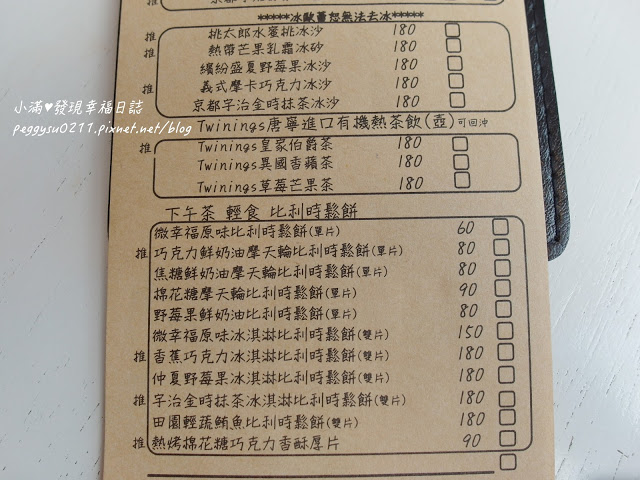 *****冰歐蕾恕無法去冰*****
推 桃太郎水蜜桃冰沙 180
推 熱帶芒果乳霜冰砂 180
繽紛盛夏野莓果冰沙 180
推 義式摩卡巧克力冰沙 180
京都宇治金時抹茶冰沙 180
Twinings唐寧進口有機熱茶飲(壺)可回沖
推 Twinings皇家伯爵茶 180
Twinings異國香蘋茶 180
Twinings草莓芒果茶 180
下午茶 輕食 比利時鬆餅
微幸福原味比利時鬆餅(單片) 60
推 巧克力鮮奶油摩天輪比利時鬆餅(單片) 80
焦糖鮮奶油摩天輪比利時鬆餅(單片) 80
棉花糖摩天輪比利時鬆餅(單片) 90
野莓果鮮奶油比利時鬆餅(單片) 80
微幸福原味冰淇淋比利時鬆餅(雙片) 150
推 香蕉巧克力冰淇淋比利時鬆餅(雙片) 180
仲夏野莓果冰淇淋比利時鬆餅(雙片) 180
推 宇治金時抹茶冰淇淋比利時鬆餅(雙片) 180
田園輕蔬鮪魚比利時鬆餅(雙片) 180
推 熱烤棉花糖巧克力香酥厚片 90
小滿♥發現幸福日誌
peggysu0211.pixnet.net/blog